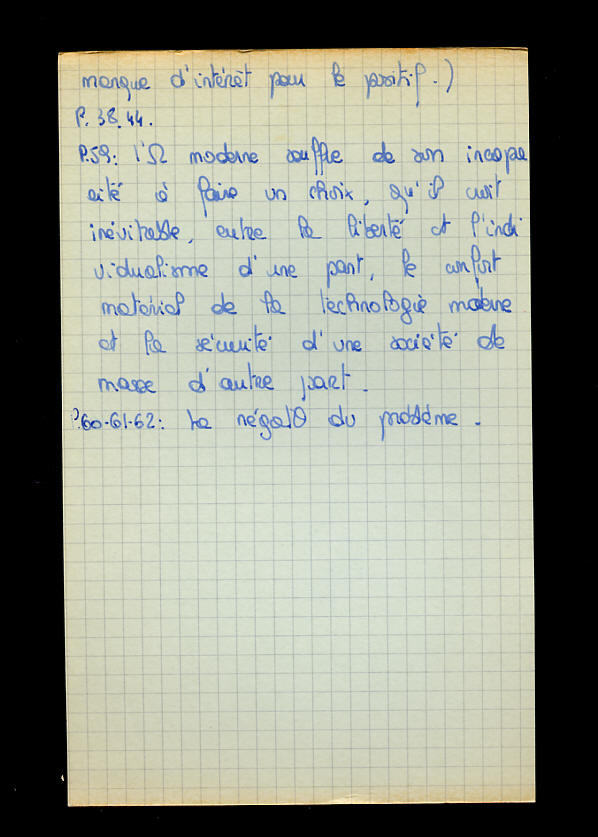 manque d'intérêt pour le positif.)
P. 38.44.
P.59: l'Ω moderne souffre de son incapa
cité à faire un choix, qu'il croit
inévitable, entre la liberté et l'indi
vidualisme d'une part, le confort
matériel de la technologie moderne
et la sécurité d'une société de
masse d'autre part.
P.60-61-62: La négatθ du problème.